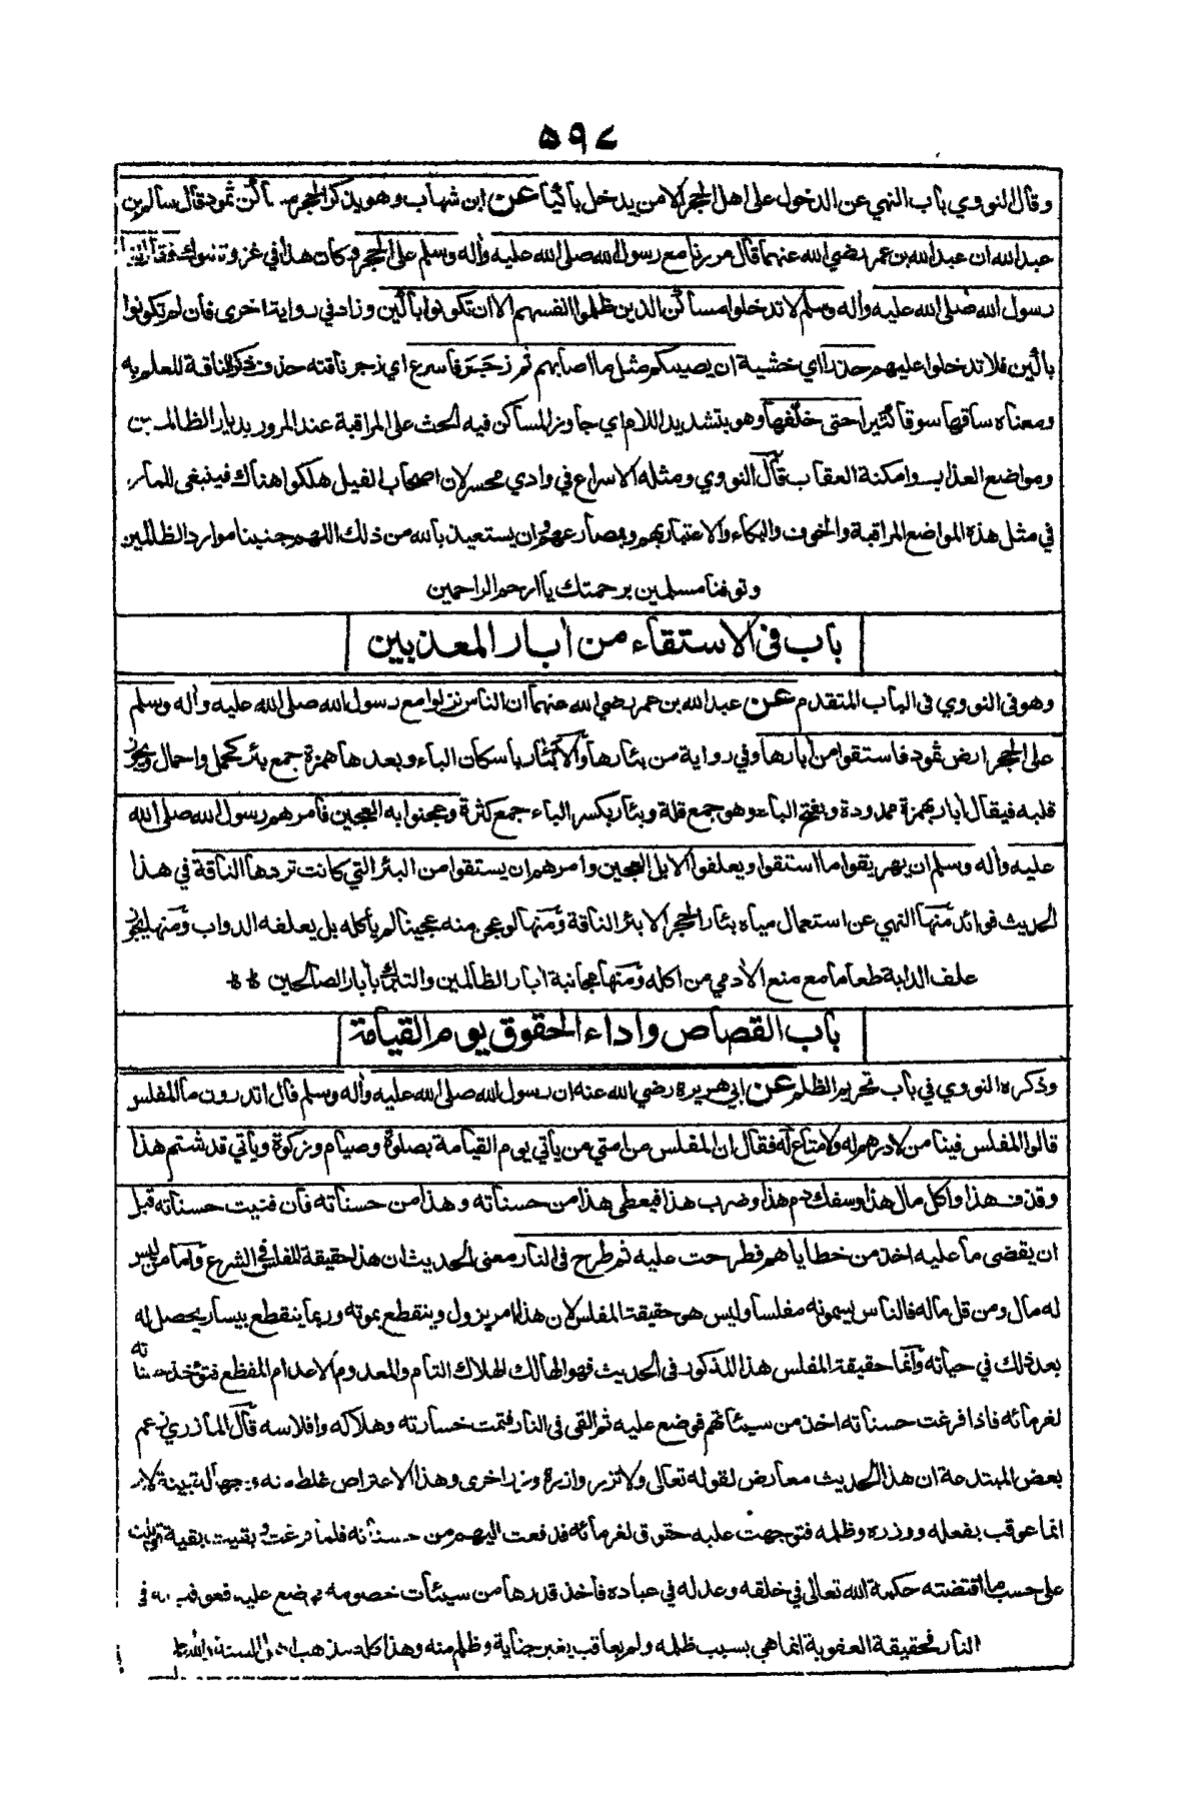 ٥٩٧
وقال النووي باب النهي عن الدخول على اهل الحجر الا من يدخل باكيا عن ابن شهاب وهو يذكر الحجر مساكن ثمود قال سالم بن
عبد الله ان عبد الله بن عمر رضي الله عنهما قال مررنا مع رسول الله صلى الله عليه واله وسلم على الحجر وكان هذا في غزوة تبوك فقال لنا
رسول الله صلى الله عليه واله وسلم لا تدخلوا مساكن الذين ظلموا انفسهم الا ان تكونوا باكين وزاد في رواية اخرى فان لم تكونوا
باكين فلا تدخلوا عليهم حذرا اي خشية ان يصيبكم مثل ما اصابهم ثم زجر فاسرع اي زجر ناقته حذف ذكر الناقة للعلم به
ومعناه ساقها سوقا كثيرا حتى خلفها وهو بتشديد اللام اي جاوز المساكن فيه الحث على المراقبة عند المرور بديار الظالمين
ومواضع العذاب وامكنة العقاب قال النووي ومثله الاسراع في وادي محسر لان اصحاب الفيل هلكوا هناك فينبغي للمار
في مثل هذه المواضع المراقبة والخوف والبكاء والاعتبار بهم وبمصارعهم وان يستعيذ بالله من ذلك اللهم جنبنا موارد الظالمين
وتوفنا مسلمين برحمتك يا ارحم الراحمين
باب في الاستقاء من ابار المعذبين
وهو في النووي في الباب المتقدم عن عبد الله بن عمر رضي الله عنهما ان الناس نزلوا مع رسول الله صلى الله عليه واله وسلم
على الحجر ارض ثمود فاستقوا من ابارها وفي رواية من بئارها والابئار باسكان الباء وبعدها همزة جمع بئر كحمل واحمال ويجوز
قلبه فيقال ابار بهمزة ممدودة وبفتح الباء وهو جمع قلة وبئار بكسر الباء جمع كثرة وعجنوا به العجين فامرهم رسول الله صلى الله
عليه واله وسلم ان يهريقوا ما استقوا ويعلفوا الابل العجين وامرهم ان يستقوا من البئر التي كانت تردها الناقة في هذا
الحديث فوائد منها النهي عن استعمال مياه بئار الحجر الا بئر الناقة ومنها لو عجن منه عجينا لم يأكله بل يعلفه الدواب ومنها يجوز
علف الدابة طعاما مع منع الأدمي من اكله ومنها مجانبة ابار الظالمين والتبرك بأبار الصالحين
باب القصاص واداء الحقوق يوم القيامة
وذكره النووي في باب تحريم الظلم عن ابي هريرة رضي الله عنه ان رسول الله صلى الله عليه واله وسلم قال اتدرون ما المفلس
قالوا المفلس فينا من لا درهم له ولا متاع له فقال ان المفلس من امتي من يأتي يوم القيامة بصلوة وصيام وزكوة ويأتي قد شتم هذا
وقذف هذا واكل مال هذا وسفك دم هذا وضرب هذا فيعطى هذا من حسناته وهذا من حسناته فان فنيت حسناته قبل
ان يقضى ما عليه اخذ من خطاياهم فطرحت عليه ثم طرح في النار معنى الحديث ان هذا حقيقة المفلس في الشرع واما من ليس
له مال ومن قل ماله فالناس يسمونه مفلسا وليس هو حقيقة المفلس لان هذا امر يزول وينقطع بموته وربما ينقطع بيسار يحصل له
بعد ذلك في حياته وانما حقيقة المفلس هذا المذكور في الحديث فهو الهالك الهلاك التام والمعدوم الاعدام المقطع فتؤخذ حسناته
لغرمائه فاذا فرغت حسناته اخذ من سيئاتهم فوضع عليه ثم القى في النار فتمت خسارته وهلاكه وافلاسه قال المازري زعم
بعض المبتدعة ان هذا الحديث معارض لقوله تعالى ولا تزر وازرة وزر اخرى وهذا الاعتراض غلط منه وجهالة بينة لانه
انما عوقب بفعله ووزره وظلمه فتوجهت عليه حقوق لغرمائه فدفعت اليهم من حسناته فلما فرغت وبقيت بقية قوبلت
على حسب ما اقتضته حكمة الله تعالى في خلقه وعدله في عباده فاخذ قدرها من سيئات خصومه فوضع عليه فعوقب به في
النار فحقيقة العقوبة انما هي بسبب ظلمه ولم يعاقب بغير جناية وظلم منه وهذا كله مذهب اهل السنة والله اعلم